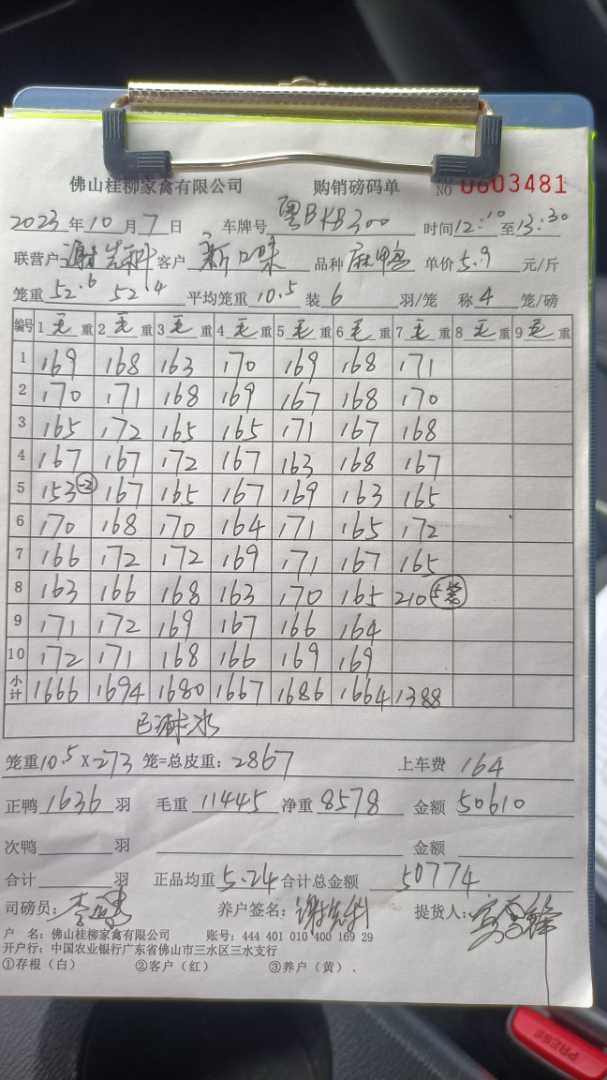 佛山桂柳家禽有限公司 购销磅码单 NO 0603481
2023年10月7日 车牌号 粤BKB300 时间12:10至13:30
联营户 谢先科 客户 新口味 品种 麻鸭 单价5.9元/斤
笼重52.6 52.4 平均笼重10.5 装6羽/笼 称4笼/磅
编号 1毛重 2毛重 3毛重 4毛重 5毛重 6毛重 7毛重 8毛重 9毛重
1 169 168 163 170 169 168 171
2 170 171 168 169 167 168 170
3 165 172 165 165 171 167 168
4 167 167 172 167 163 168 167
5 153 -2 167 165 167 169 163 165
6 170 168 170 164 171 165 172
7 166 172 172 169 171 167 165
8 163 166 168 163 170 165 210 5笼
9 171 172 169 167 166 164
10 172 171 168 166 169 169
小计 1666 1694 1680 1667 1686 1664 1388
已淋水
笼重10.5X273笼=总皮重:2867 上车费 164
正鸭1636羽 毛重11445 净重8578 金额50610
次鸭 羽 金额
合计 羽 正品均重5.24 合计总金额50774
司磅员: 养户签名:谢先科 提货人:
户 名:佛山桂柳家禽有限公司 账号:444 401 010 400 169 29
开户行:中国农业银行广东省佛山市三水区三水支行
①存根(白) ②客户(红) ③养户(黄).
PRESS